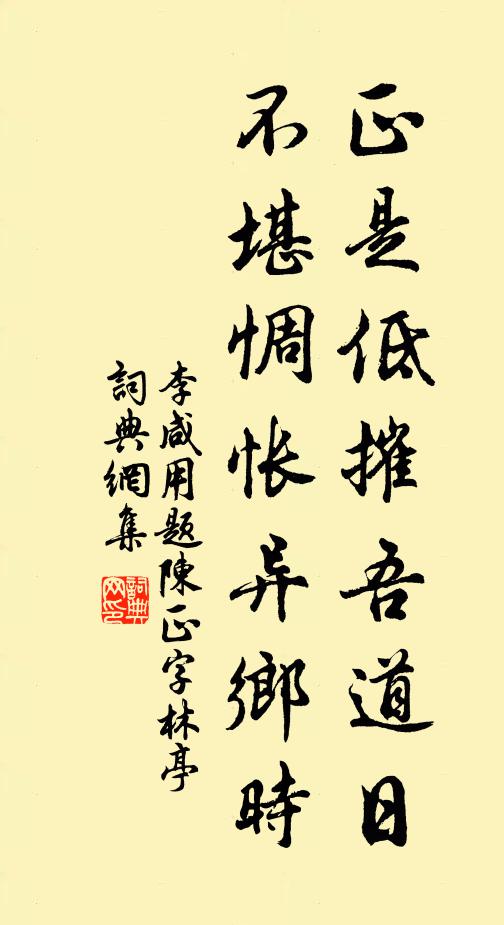 正是低摧吾道日
不堪惆怅异鄉時
李咸用題陳正字林亭
詞典網集
詞典網印